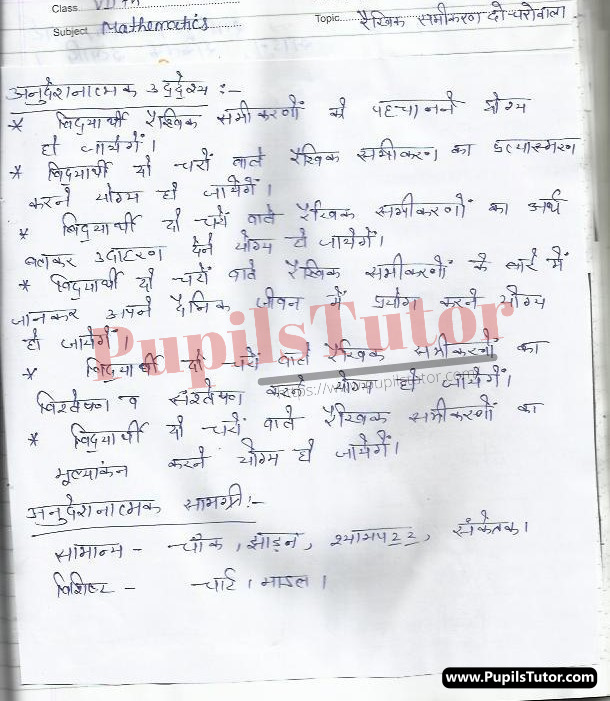 Class VII th
Subject Mathematics Topic रैखिक समीकरण दो चरोंवाला
अनुदेशनात्मक उद्देश्य :-
* विद्यार्थी रैखिक समीकरणों को पहचानने योग्य
हो जायेगें।
* विद्यार्थी दो चरों वाले रैखिक समीकरण का प्रत्यास्मरण
करने योग्य हो जायेगें।
* विद्यार्थी दो चरों वाले रैखिक समीकरणों का अर्थ
बताकर उदाहरण देने योग्य हो जायेगें।
* विद्यार्थी दो चरों वाले रैखिक समीकरणों के बारे में
जानकर अपने दैनिक जीवन में प्रयोग करने योग्य
हो जायेगें।
PupilsTutor
* विद्यार्थी दो चरों वाले रैखिक समीकरणों का
https://www.pupilstutor.com
विश्लेषण व संश्लेषण करने योग्य हो जायेगें।
* विद्यार्थी दो चरों वाले रैखिक समीकरणों का
मूल्यांकन करने योग्य हो जायेगें।
अनुदेशनात्मक सामग्री:-
सामान्य - चौक, झाड़न, श्यामपट्ट, संकेतक।
विशिष्ट - चार्ट, माडल।
www.PupilsTutor.com